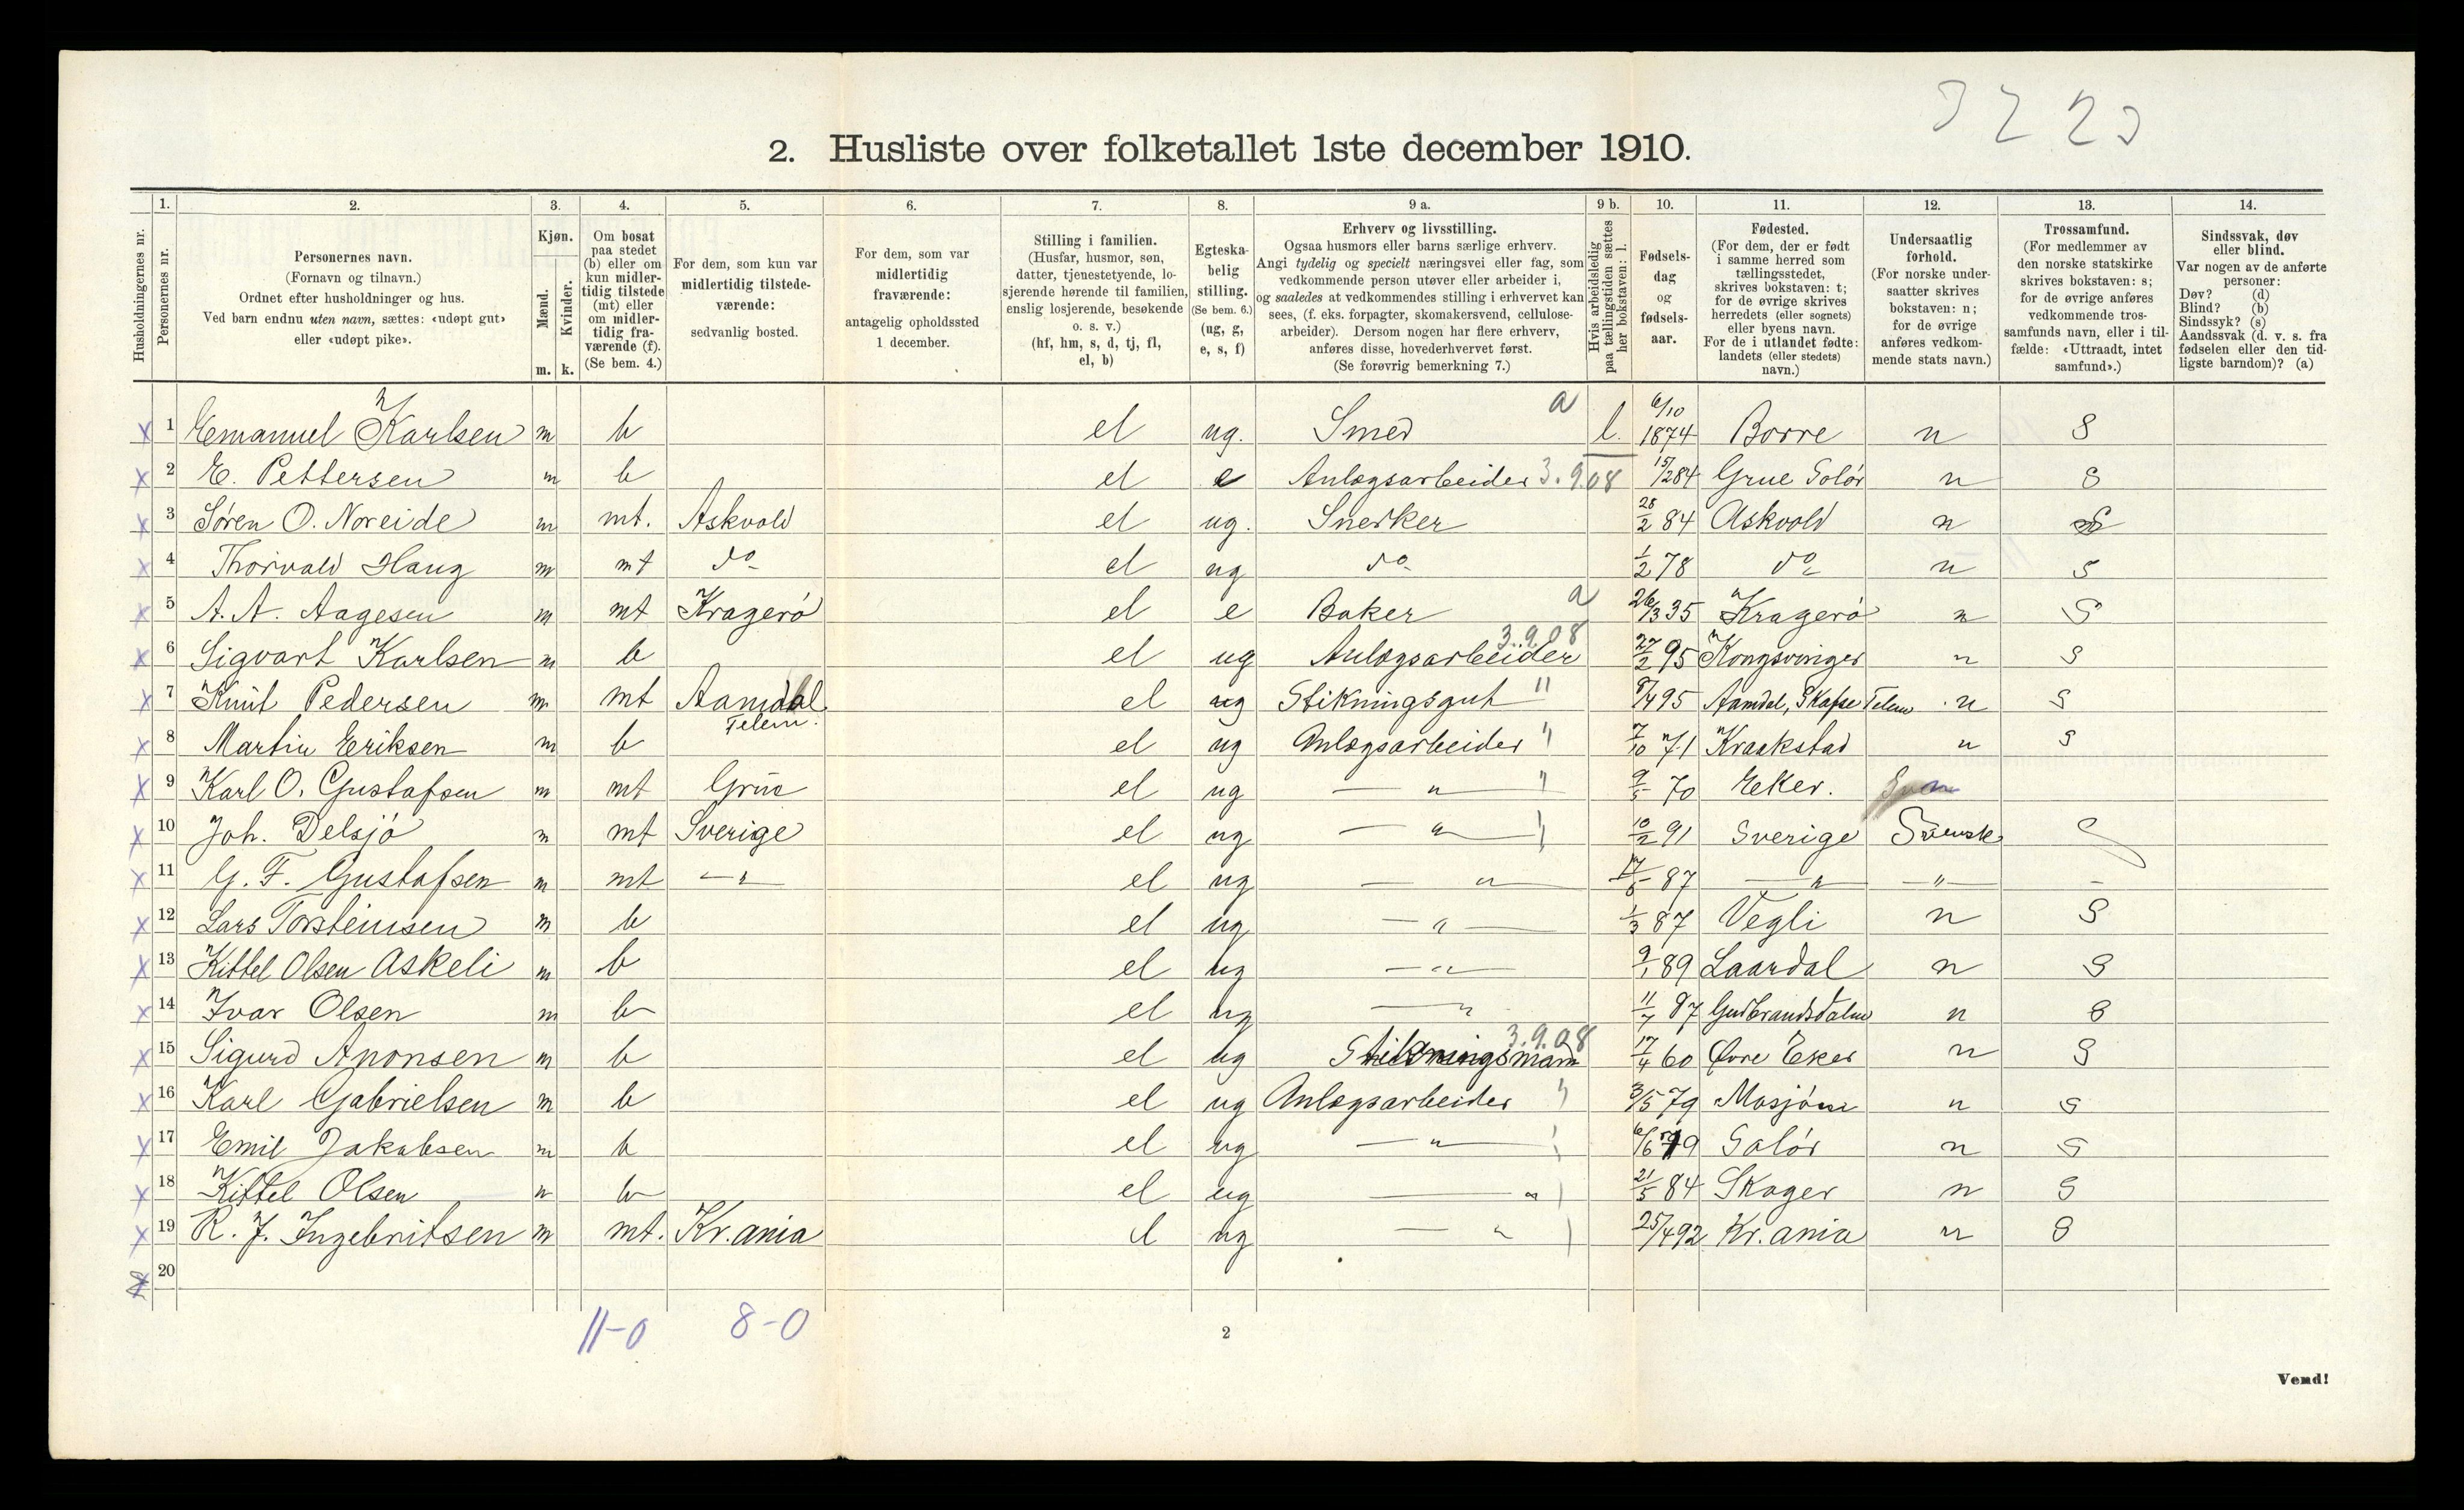 3223
2. Husliste over folketallet 1ste december 1910.
Husholdningernes nr.
1. Personernes nr.
2. Personernes navn.
(Fornavn og tilnavn.)
Ordnet efter husholdninger og hus.
Ved barn endnu uten navn, sættes: «udøpt gut»
eller «udøpt pike».
3. Kjøn.
Mænd. Kvinder.
m. k.
4. Om bosat
paa stedet
(b) eller om
kun midler-
tidig tilstede
(mt) eller
om midler-
tidig fra-
værende (f).
(Se bem. 4.)
5. For dem, som kun var
midlertidig tilstede-
værende:
sedvanlig bosted.
6. For dem, som var
midlertidig
fraværende:
antagelig opholdssted
1 december.
7. Stilling i familien.
(Husfar, husmor, søn,
datter, tjenestetyende, lo-
sjerende hørende til familien,
enslig losjerende, besøkende
o. s. v.)
(hf, hm, s, d, tj, fl,
el, b)
8. Egteska-
belig
stilling.
(Se bem. 6.)
(ug, g,
e, s, f)
9 a. Erhverv og livsstilling.
Ogsaa husmors eller barns særlige erhverv.
Angi tydelig og specielt næringsvei eller fag, som
vedkommende person utøver eller arbeider i,
og saaledes at vedkommendes stilling i erhvervet kan
sees, (f. eks. forpagter, skomakersvend, cellulose-
arbeider). Dersom nogen har flere erhverv,
anføres disse, hovederhvervet først.
(Se forøvrig bemerkning 7.)
9 b. Hvis arbeidsledig
paa tællingstiden sættes
her bokstaven: l.
10. Fødsels-
dag
og
fødsels-
aar.
11. Fødested.
(For dem, der er født
i samme herred som
tællingsstedet,
skrives bokstaven: t;
for de øvrige skrives
herredets (eller sognets)
eller byens navn.
For de i utlandet fødte:
landets (eller stedets)
navn.)
12. Undersaatlig
forhold.
(For norske under-
saatter skrives
bokstaven: n;
for de øvrige
anføres vedkom-
mende stats navn.)
13. Trossamfund.
(For medlemmer av
den norske statskirke
skrives bokstaven: s;
for de øvrige anføres
vedkommende tros-
samfunds navn, eller i til-
fælde: «Uttraadt, intet
samfund».)
14. Sindssvak, døv
eller blind.
Var nogen av de anførte
personer:
Døv? (d)
Blind? (b)
Sindssyk? (s)
Aandssvak (d. v. s. fra
fødselen eller den tid-
ligste barndom)? (a)
x 1 Emanuel Karlsen m b el ug. Smed a l. 6/10 1874 Borre n S
x 2 E. Pettersen m b el e Anlægsarbeider 3.9.08 15/2 84 Grue Solør n S
x 3 Søren O. Noreide m mt. Askvold el ug. Snedker 28/2 84 Askvold n S
x 4 Thorvald Haug m mt do el ug do 1/2 78 do n S
x 5 A. A. Aagesen m mt Kragerø el e Baker a 26/3 35 Kragerø n S
x 6 Sigvart Karlsen m b el ug Anlægsarbeider 3.9.08 27/2 95 Kongsvinger n S
x 7 Knut Pedersen m mt Aamdal Telem. el ug Stikningsgut " 8/4 95 Aamdal, Skafse Telem n S
x 8 Martin Eriksen m b el ug Anlægsarbeider " 7/10 71 Kraakstad n S
x 9 Karl O. Gustafsen m mt Grue el ug — " — " 9/5 70 Eker.
x 10 Joh. Delsjø m mt Sverige el ug — " — " 10/2 91 Sverige Svensk
x 11 G. F. Gustafsen m mt — " — el ug — " — 17/5 87 — " — — " — -
x 12 Lars Torsteinsen m b el ug — " — 1/3 87 Vegli n S
x 13 Kittel Olsen Askeli m b el ug — " — 9/1 89 Laardal n S
x 14 Ivar Olsen m b el ug — " 11/7 87 Gudbrandsdalen n S
x 15 Sigurd Aronsen m b el ug Stikningsmann 3.9.08 17/4 60 Øvre Eker n S
x 16 Karl Gabrielsen m b el ug Anlægsarbeider " 3/5 79 Mosjøen n S
x 17 Emil Jakobsen m b el ug — " — 6/6 79 Solør n S
x 18 Kittel Olsen m b el ug — " 21/5 84 Skoger n S
x 19 R. J. Ingebritsen m mt. Kr.ania el ug — " 25/4 92 Kr.ania n S
20
11-0 8-0
2
Vend!